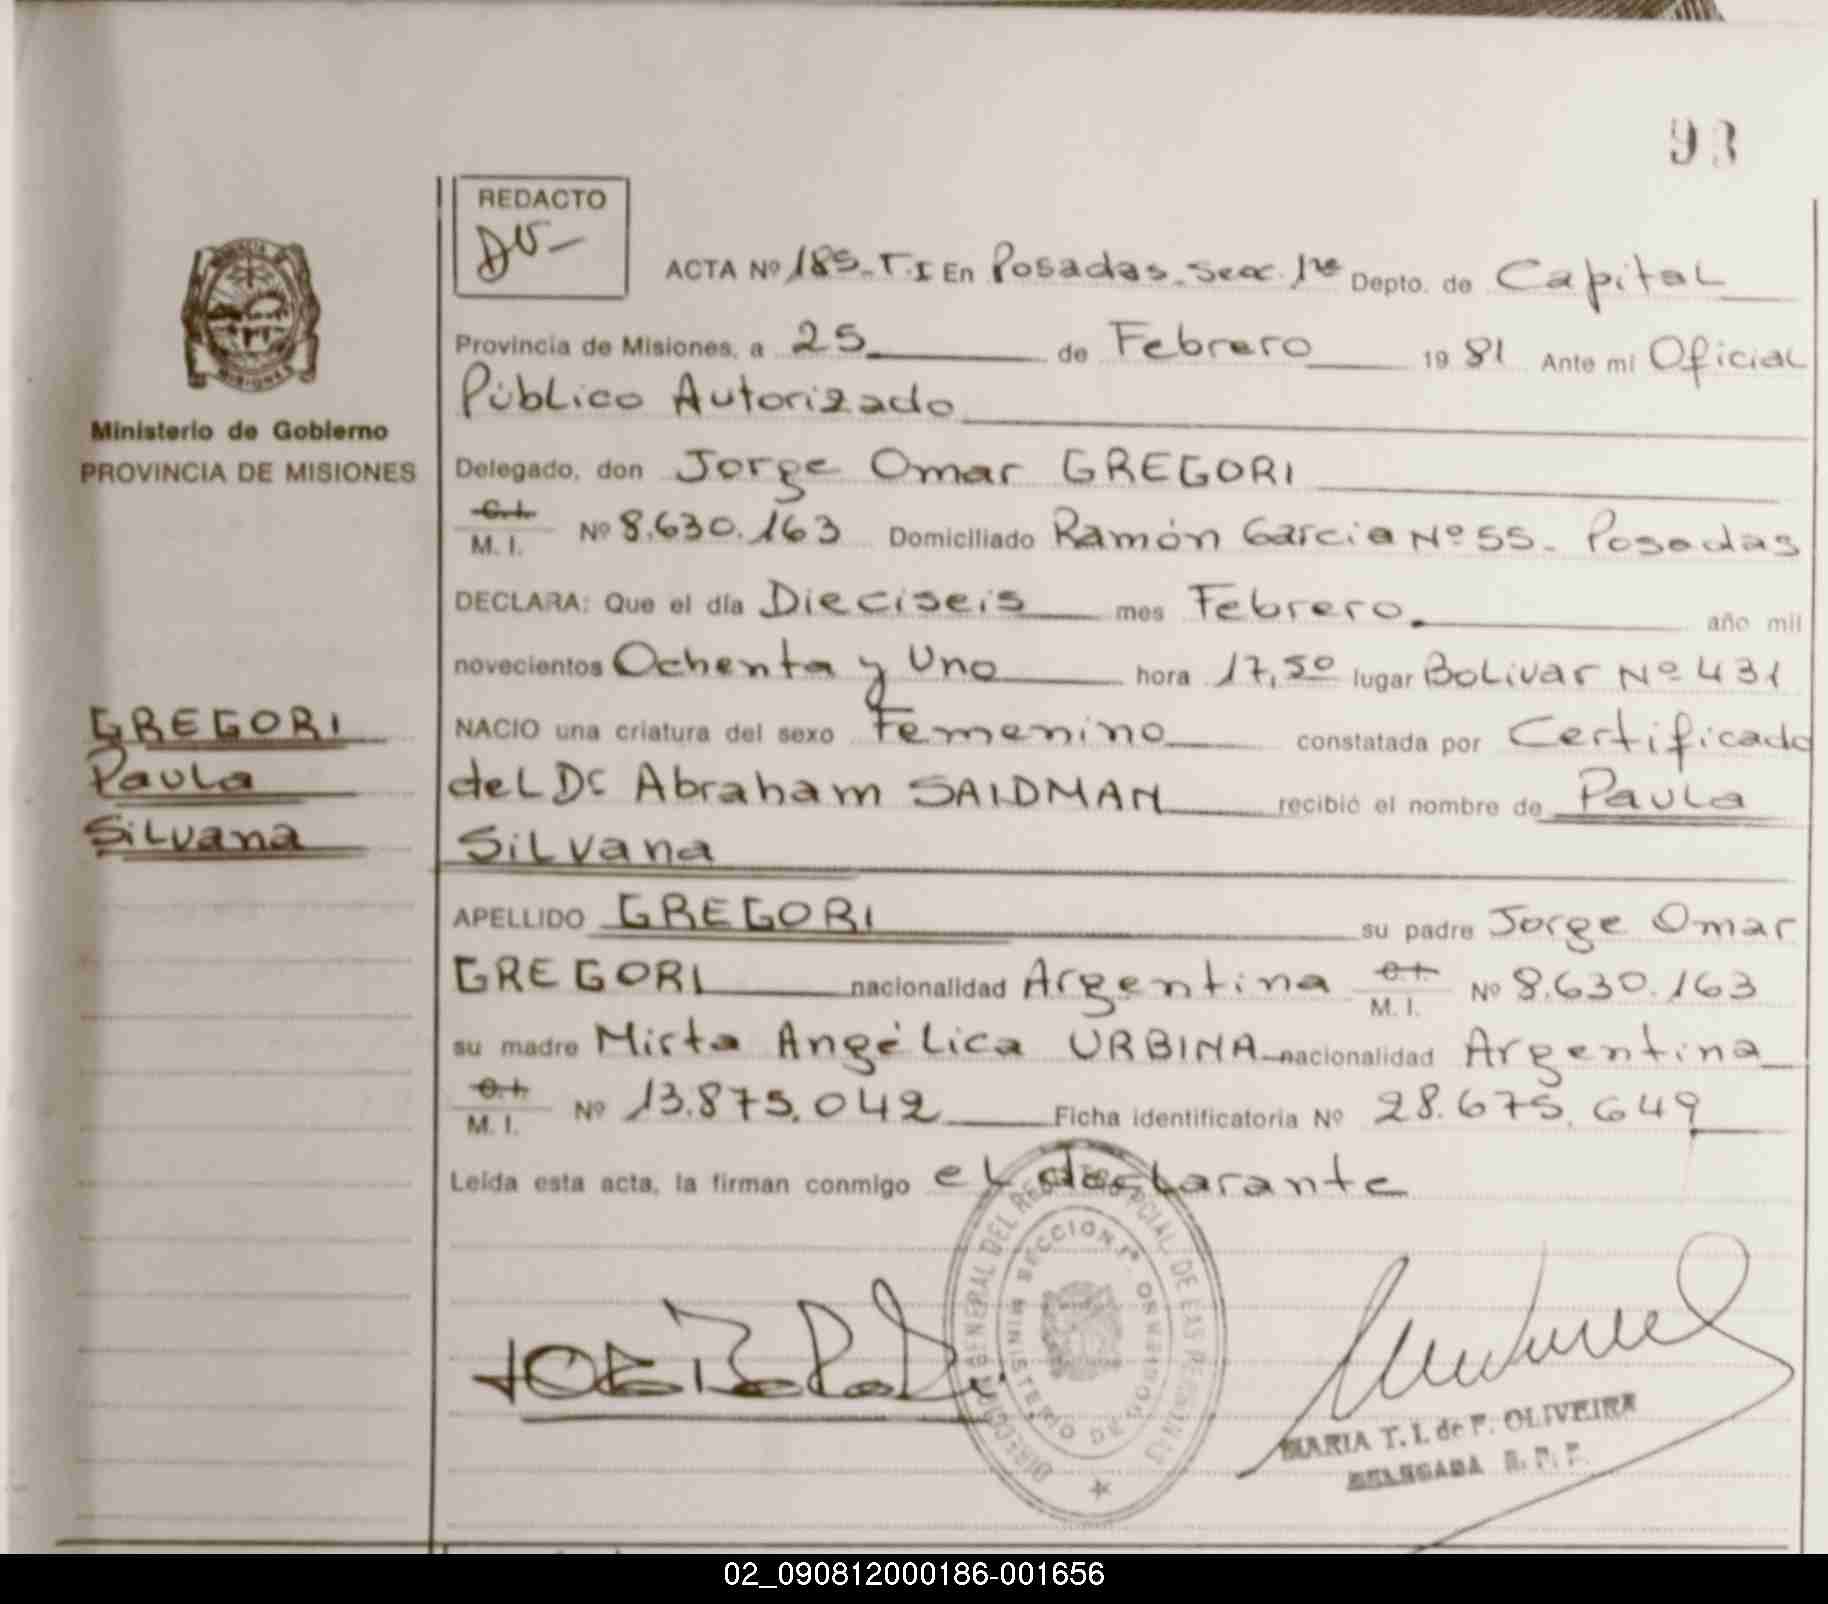 93
REDACTO
DV-
ACTA Nº 185-T.I En Posadas-Secc. 1ra Depto. de Capital
Provincia de Misiones, a 25 de Febrero 1981 Ante mi Oficial
Público Autorizado
Delegado, don Jorge Omar GREGORI
C.I.
M. I. Nº 8.630.163 Domiciliado Ramón Garcia Nº 55- Posadas
DECLARA: Que el día Dieciseis mes Febrero. año mil
novecientos Ochenta y Uno hora 17,50 lugar Bolivar Nº 431
NACIO una criatura del sexo Femenino constatada por Certificado
del Dr Abraham SAIDMAN recibió el nombre de Paula
Silvana
APELLIDO GREGORI su padre Jorge Omar
GREGORI nacionalidad Argentina C.I. M. I. Nº 8.630.163
su madre Mirta Angélica URBINA nacionalidad Argentina
C.I.
M. I. Nº 13.875.042 Ficha identificatoria Nº 28.675.649
Leída esta acta, la firman conmigo el declarante
MISIONES
Ministerio de Gobierno
PROVINCIA DE MISIONES
GREGORI
Paula
Silvana
DIRECCION GENERAL DEL REGISTRO PCIAL. DE LAS PERSONAS
SECCION 1ª
MINISTERIO DE GOBIERNO
MARIA T. I. de F. OLIVEIRA
DELEGADA R. P. P.
02_090812000186-001656